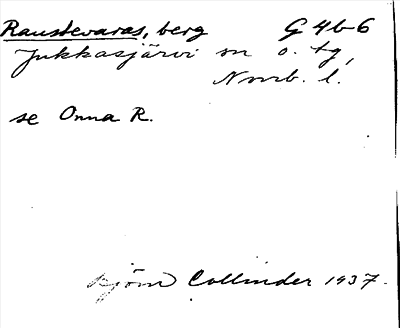 Raustevaras, berg G 4b6
Jukkasjärvi sn o. tg,
Norrb. l.
se Onna R.
Björn Collinder 1937.